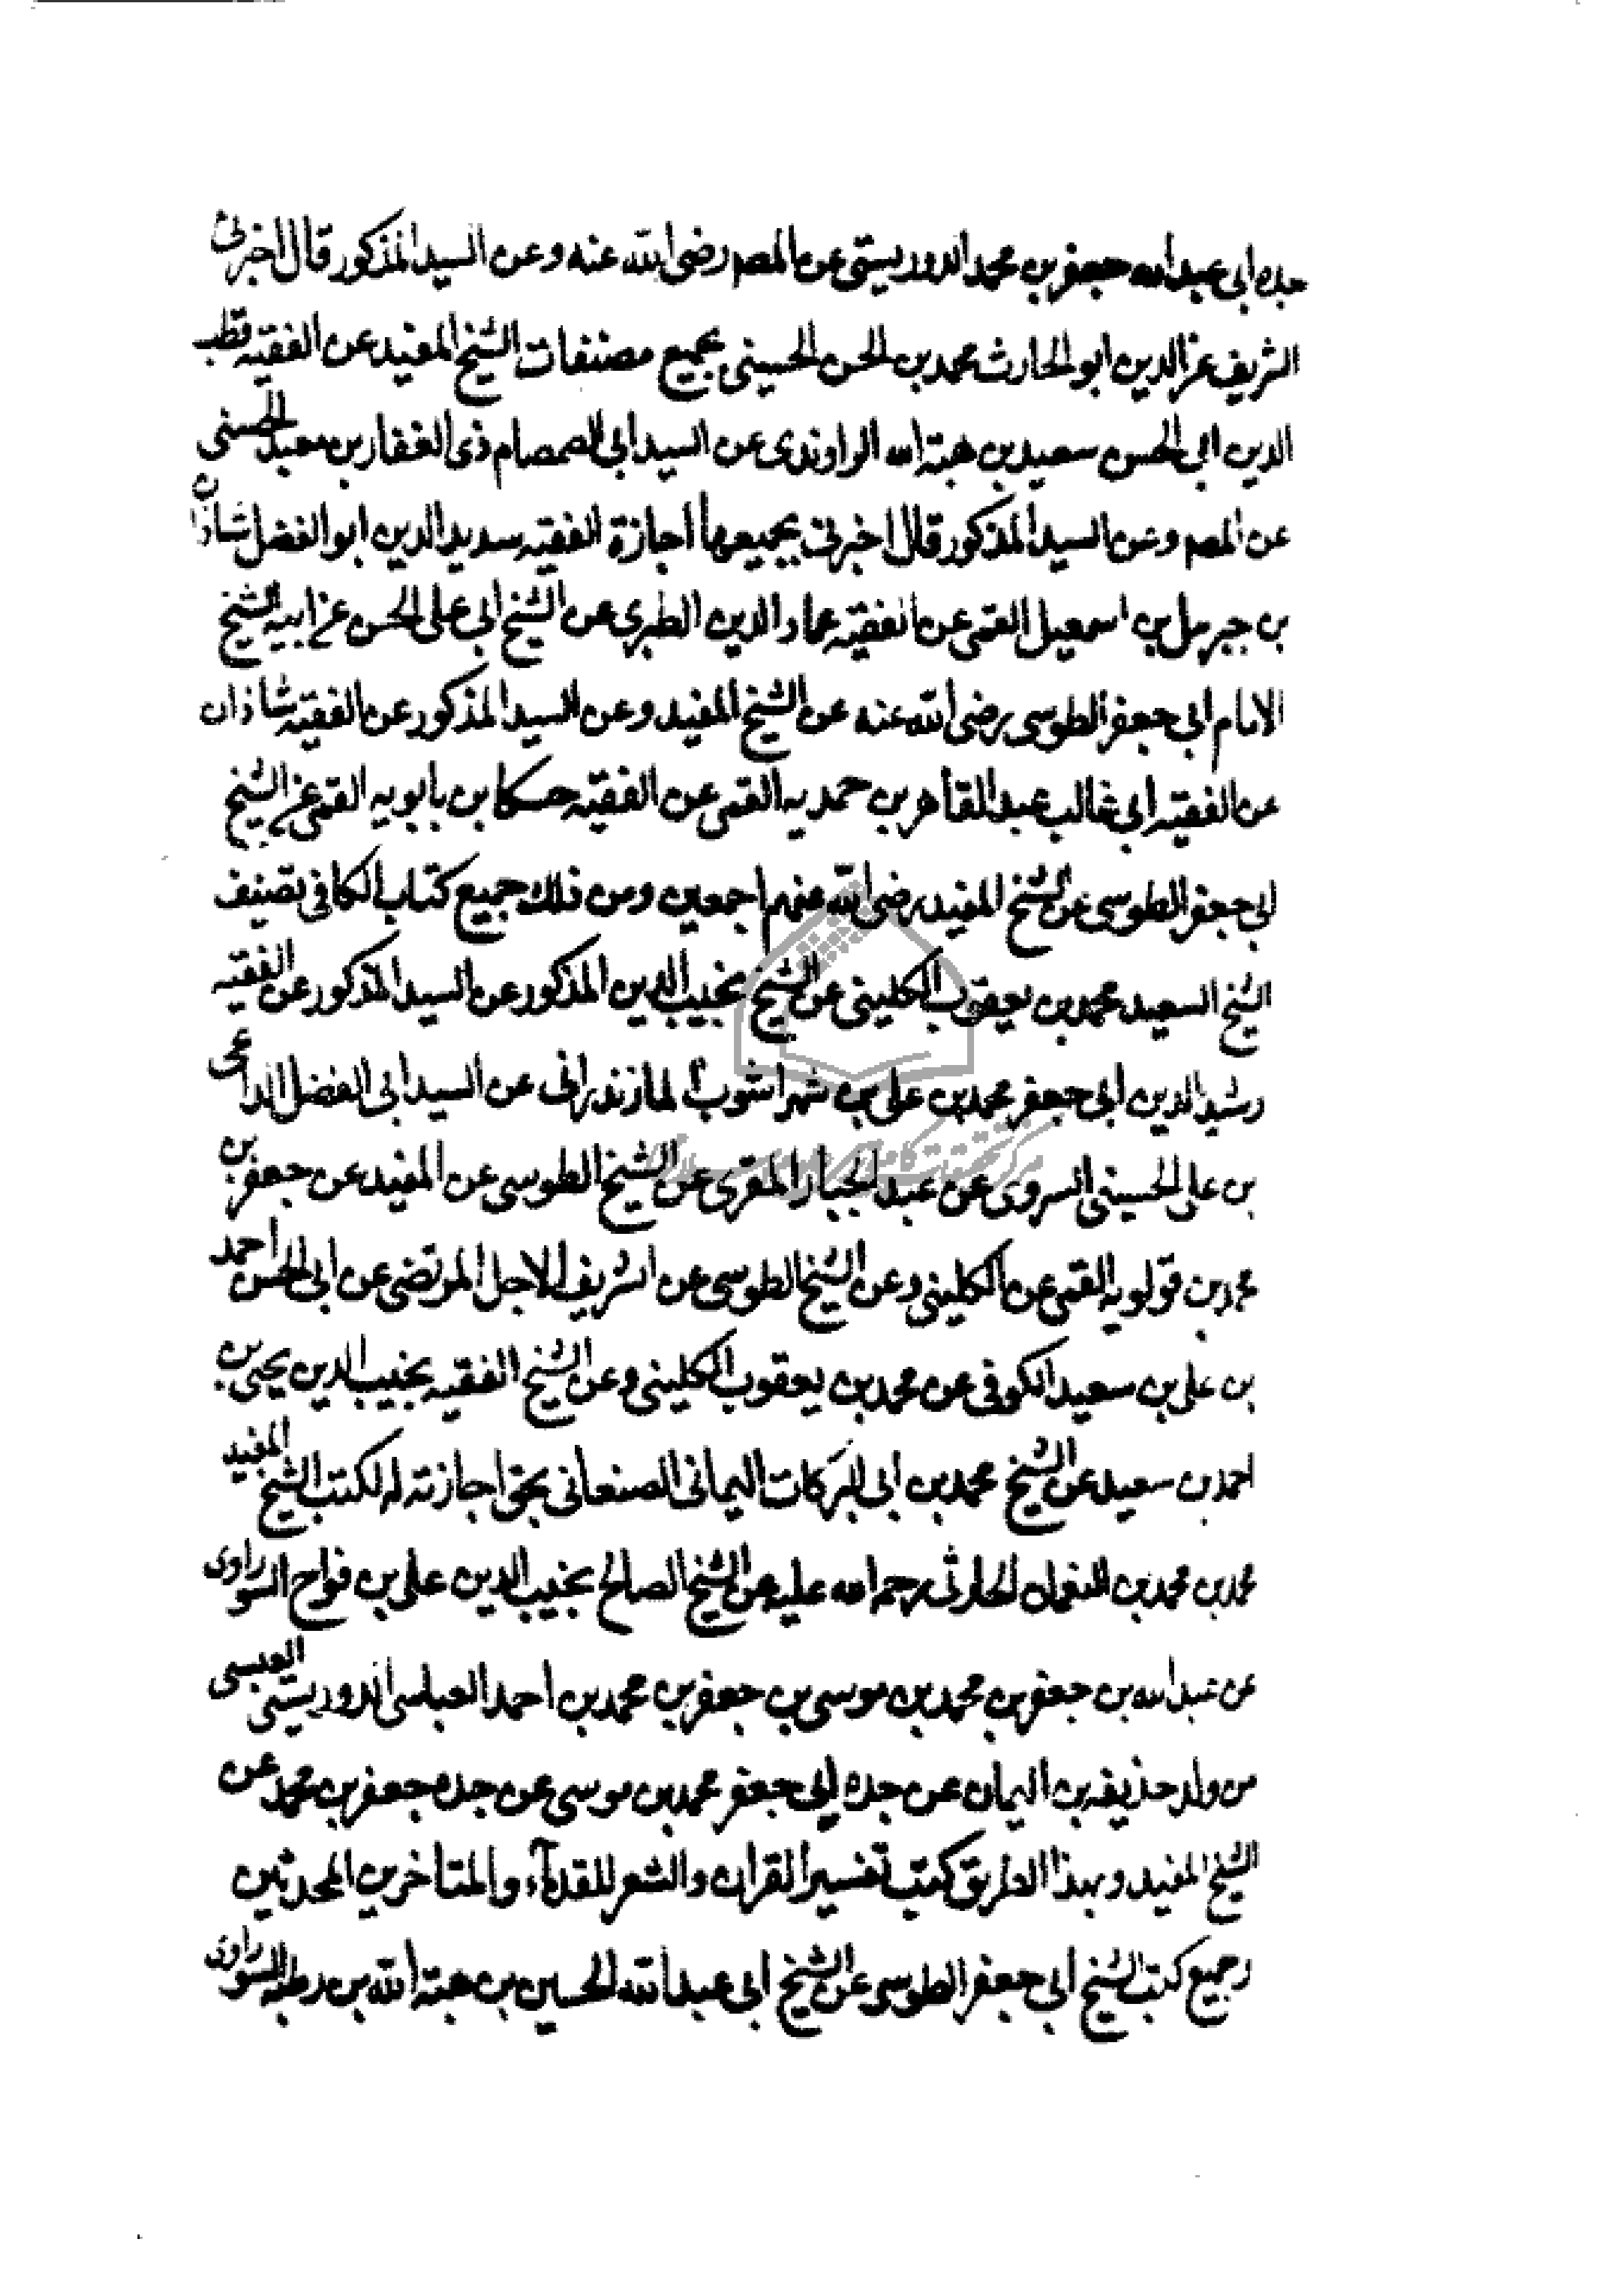 جده ابی عبد الله جعفر بن محمد الدوریستی عن المصر رضی الله عنه وعن السید المذکور قال اخبرنی
الشریف عز الدین ابو الحارث محمد بن الحسن الحسینی بجمیع مصنفات الشیخ المفید عن الفقیه قطب
الدین ابی الحسن سعید بن هبة الله الراوندی عن السید ابی الصمصام ذی الفقار بن معبد الحسنی
عن المصر وعن السید المذکور قال اخبرنی بجمیعها اجازة الفقیه سدید الدین ابو الفضل شاذان
بن جبرییل بن اسمعیل القمی عن الفقیه عماد الدین الطبری عن الشیخ ابی علی الحسن عن ابیه الشیخ
الامام ابی جعفر الطوسی رضی الله عنه عن الشیخ المفید وعن السید المذکور عن الفقیه شاذان
عن الفقیه ابی غالب عبد القاهر بن حمدیه القمی عن الفقیه حسکا بن بابویه القمی عن الشیخ
ابی جعفر الطوسی عن الشیخ المفید رضی الله عنهم اجمعین ومن ذلك جمیع کتاب الکافی تصنیف
الشیخ السعید محمد بن یعقوب الکلینی عن الشیخ نجیب الدین المذکور عن السید المذکور عن الفقیه
رشید الدین ابی جعفر محمد بن علی بن شهراشوب المازندرانی عن السید ابی الفضل الداعی
بن علی الحسینی السروی عن عبد الجبار المقری عن الشیخ الطوسی عن المفید عن جعفر بن
محمد بن قولویه القمی عن الکلینی وعن الشیخ الطوسی عن الشریف الاجل المرتضی عن ابی الحسن احمد
بن علی بن سعید الکوفی عن محمد بن یعقوب الکلینی وعن الشیخ الفقیه نجیب الدین یحیی بن
احمد بن سعید عن الشیخ محمد بن ابی البرکات الیمانی الصنعانی بحق اجازته له لکتب الشیخ المفید
محمد بن محمد بن النعمان الحارثی رحمه الله علیه عن الشیخ الصالح نجیب الدین علی بن فواح السوراوی
عن عبد الله بن جعفر بن محمد بن موسی بن جعفر بن محمد بن احمد العباسی الدوریستی العبسی
من ولد حذیفه بن الیمان عن جده ابی جعفر محمد بن موسی عن جده جعفر بن محمد عن
الشیخ المفید وبهذا الطریق کتب تفسیر القران والشعر للقدماء والمتاخرین المحدثین
وجمیع کتب الشیخ ابی جعفر الطوسی عن الشیخ ابی عبد الله الحسین بن هبة الله بن رطبه السوراوی